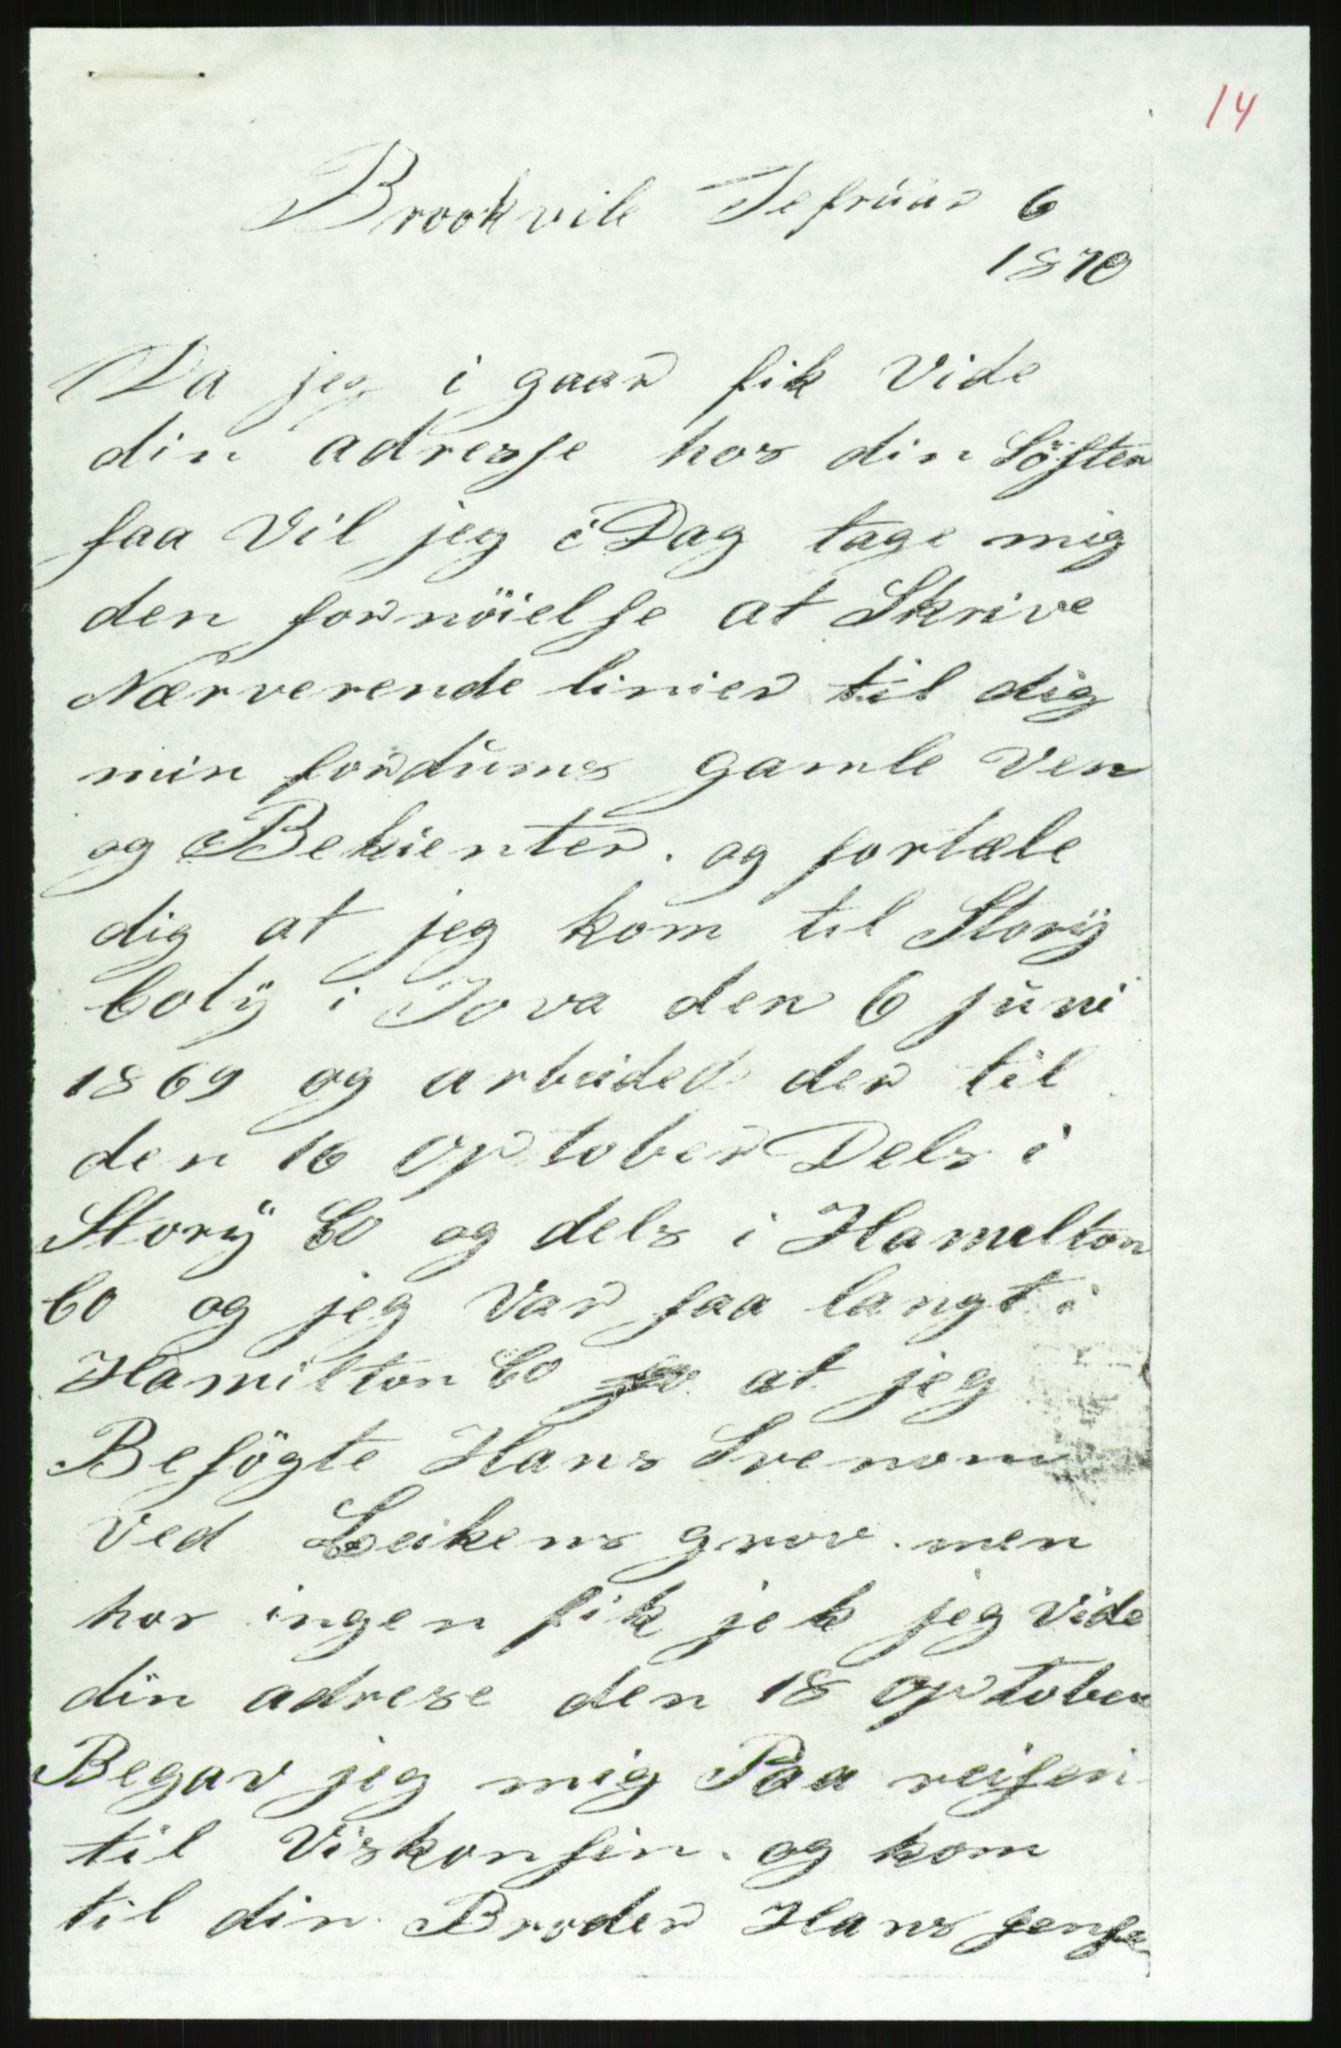 14
Brookvile Fefruar 6
1870
Da jeg i gaar fik Vide
din adresse hos din Söster
saa Vil jeg i Dag tage mig
den fornöielse at Skrive
Nærverende linier til dig
min fordums gamle Ven
og Bekienter. og fortæle
dig at jeg kom til Story
Coty i Iova den 6 juni
1869 og arbeided der til
den 16 Oportober Dels i
Story CO og dels i Hamelton
CO og jeg Var saa langt i
Hamilton CO at jeg
Besögte Hans
Ved Leikens grov. men
hos ingen fik jek jeg Vide
din adrese den 18 Oportober
Begav jeg mig Paa reisen
til Viskonsin. og kom
til din Broder Hans Jense